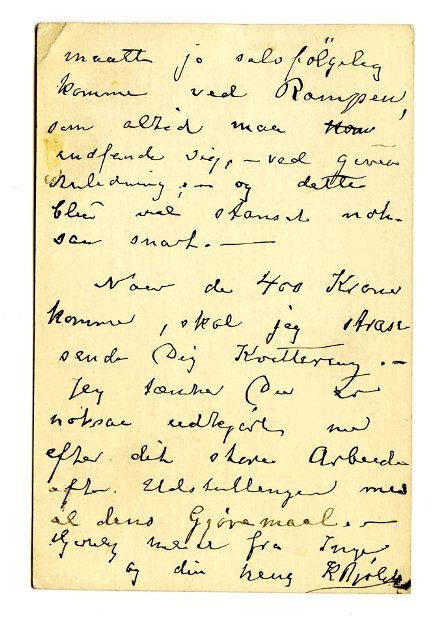 maatte jo selvfölgelig
komme ved Rampen,
som altid maa
indfinde sig, – ved given
Anledning; – og dette
blev vel stanset nok-
saa snart. –
Naar de 400 Kroner
komme, skal jeg strax
sende Dig Kvittering. –
Jeg tænker Du er
noksaa udkjört nu
efter dit store Arbeide
efter Udstillingen med
al dens Gjöremaal. –
hilsen fra Inga
og din heng